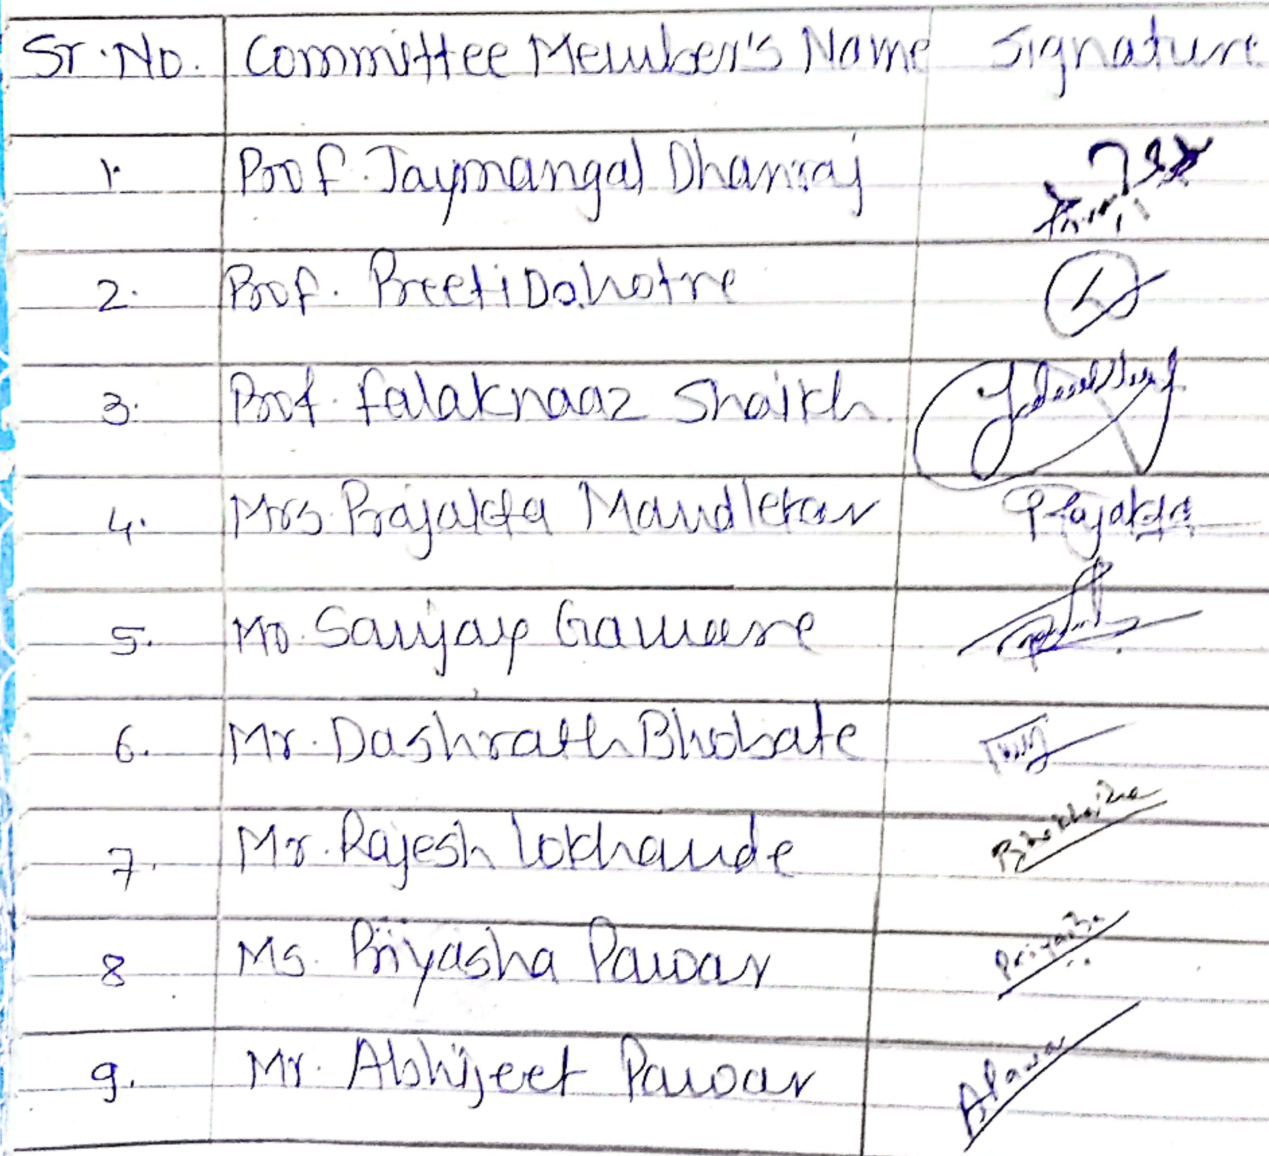 Sr. No. Committee Member's Name Signature
1. Prof. Jaymangal Dhanraj
2. Prof. Preeti Dahotre
3. Prof. Falaknaaz Shaikh.
4. Mrs. Prajakta Mandlekar Prajakta
5. Mr. Sanjay Gamare
6. Mr. Dashrath Bhobate
7. Mr. Rajesh Lokhande
8 Ms. Priyasha Pawar
9. Mr. Abhijeet Pawar APawar